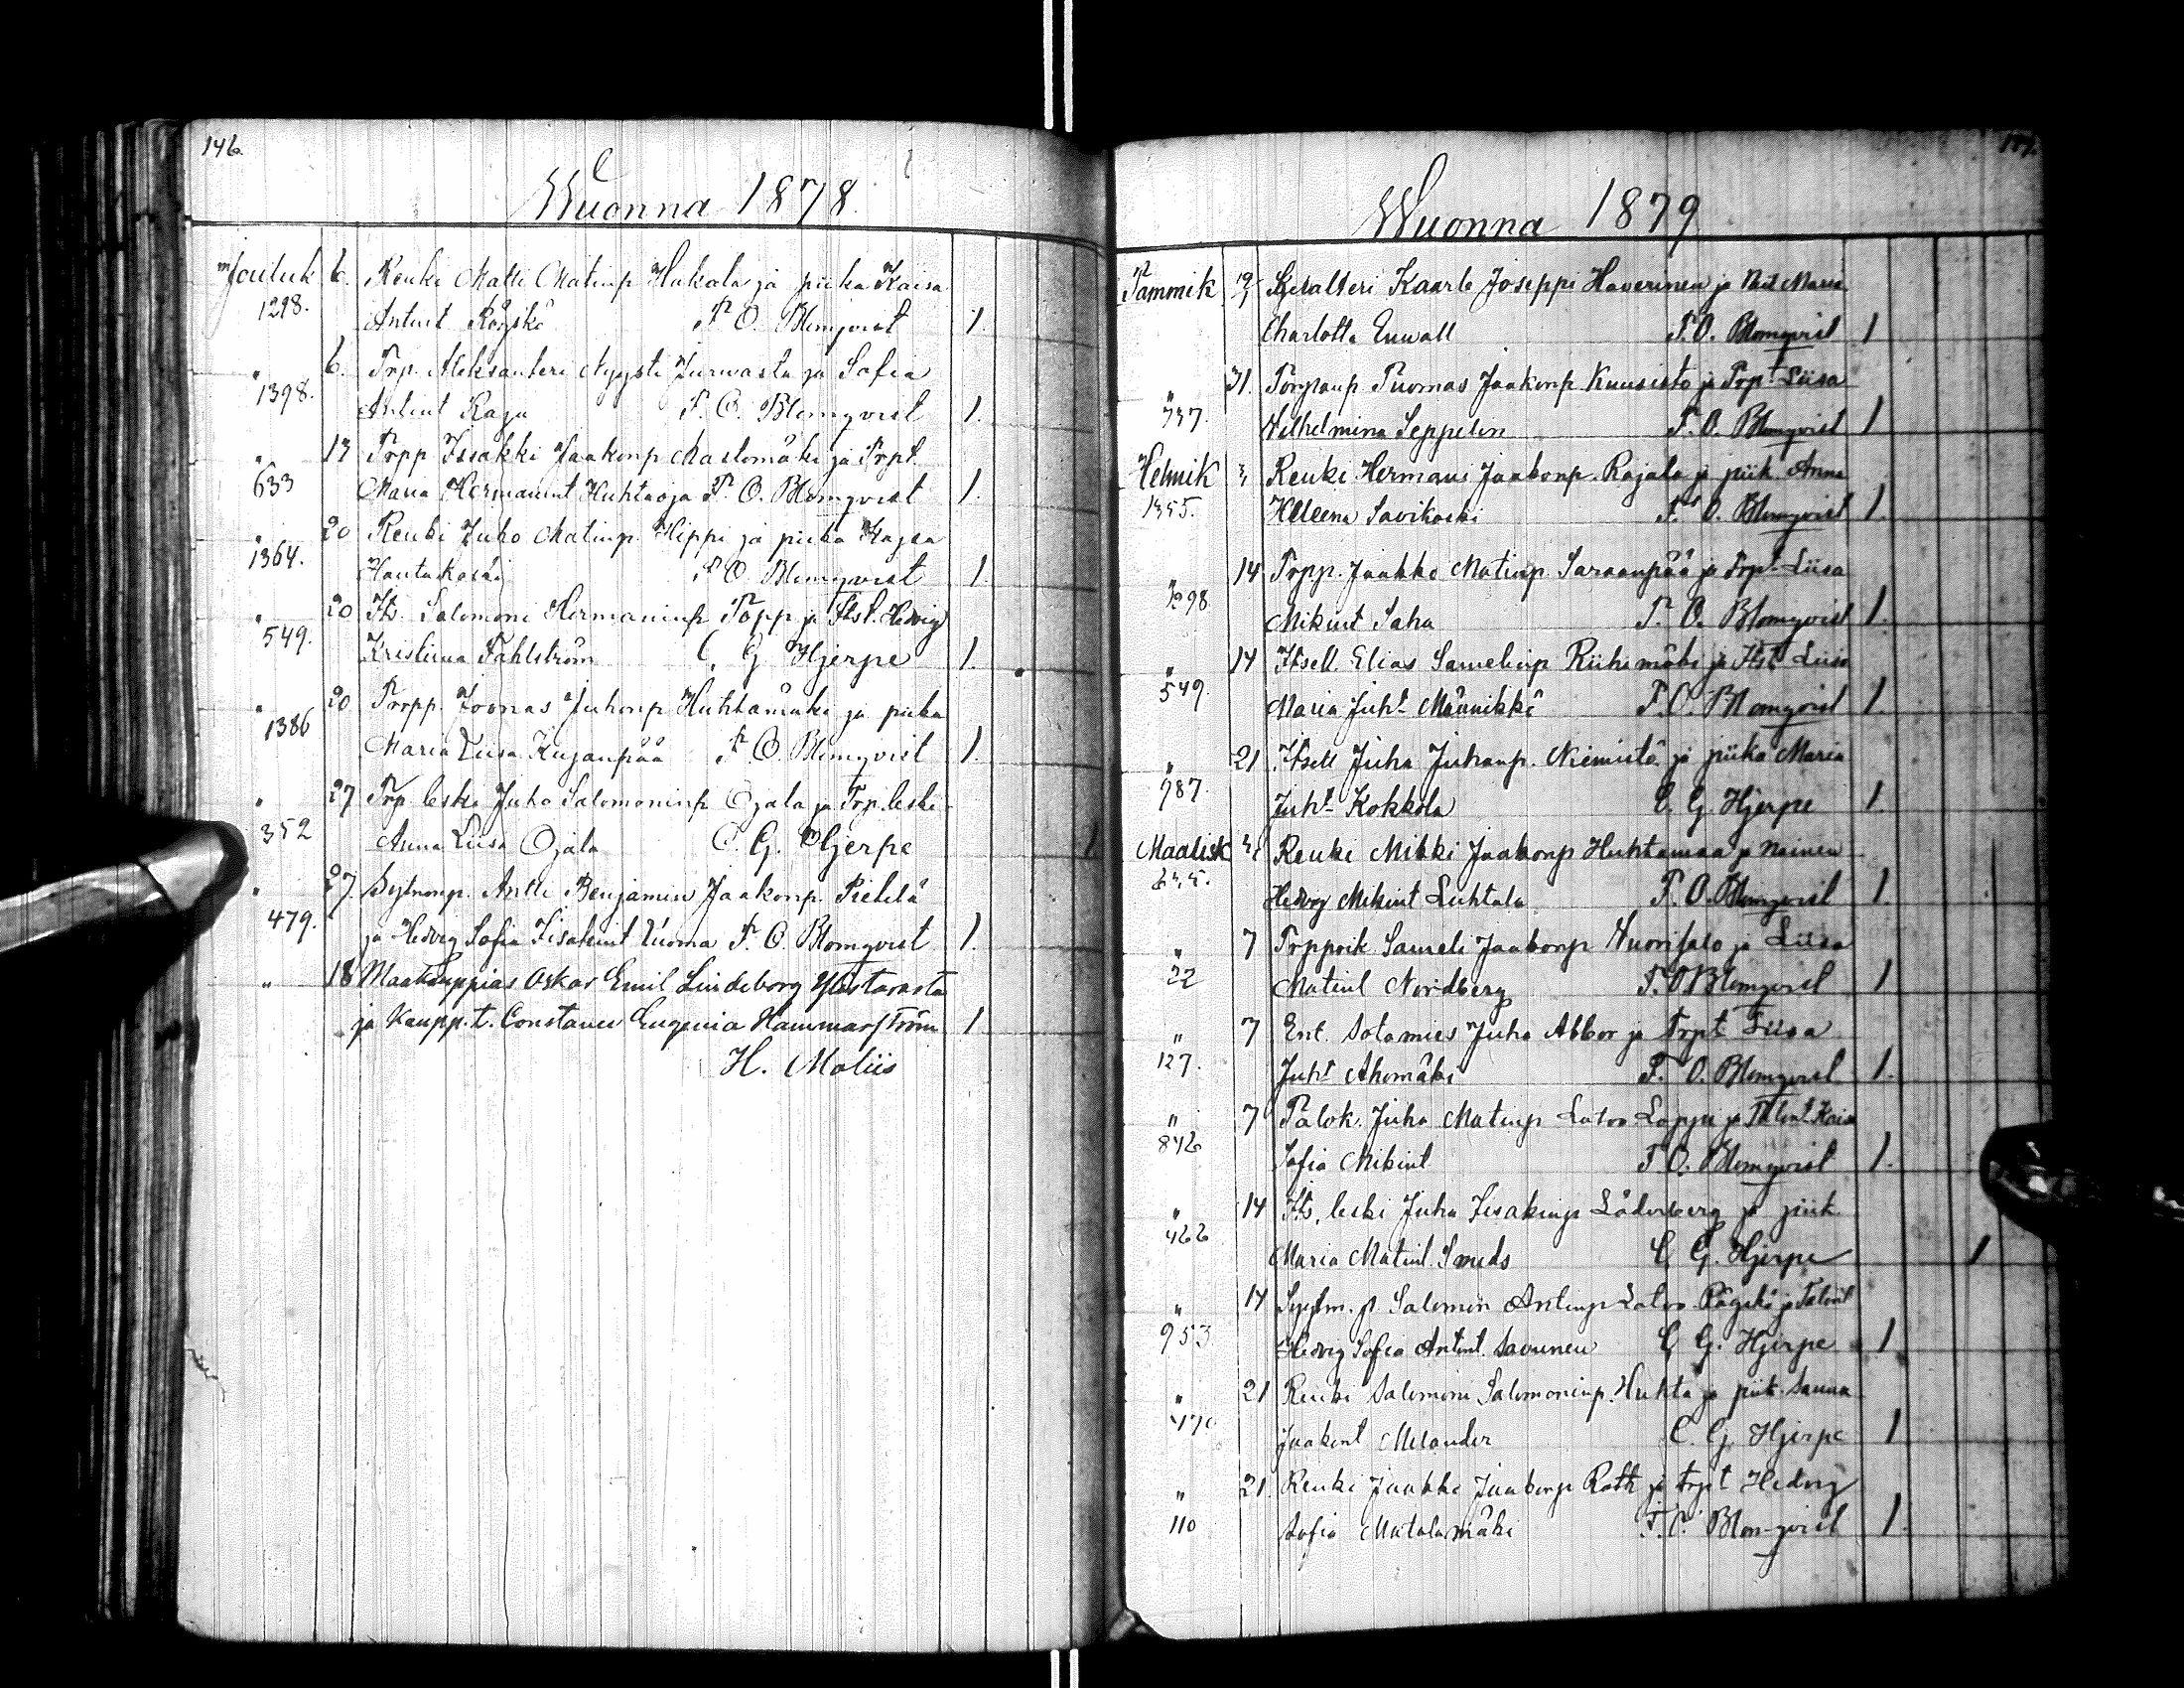 146.
Wuonna 1878.
Jouluk 6. Renki Matti Matinp Hakala ja piika Kaisa
1298. Antint Röyskö F. O. Blomqvist 1.
" 6. Trp. Aleksanteri Nyysti Jurvasta ja Sofia
1398. Antint Raju F. O. Blomqvist 1.
" 13 Trpp Iisakki Jaakonp Maslomäki ja Trpt.
633 Maria Hermanint Huhtaoja F. O. Blomqvist 1.
" 20 Renki Juho Matinp Hippi ja piika Kajsa
1364. Hautakoski F. O. Blomqvist 1.
" 20 Its. Salomoni Hermaninp Topp ja Itst. Hedvig
549. Kristiina Fahlström C. G. Hjerpe 1.
" 20 Torpp. Joonas Juhonp Huhtamäki ja piika
1386 Maria Liisa Kujanpää F. O. Blomqvist 1.
" 27 Trp. leski Juho Salomoninp Ojala ja Trp. leski
352 Anna Liisa Ojala C. G. Hjerpe 1
" 27. Sytinonp. Antti Benjamin Jaakonp. Pietilä
479. ja Hedvig Sofia Iisakint Luoma F. O. Blomqvist 1.
" 18 Maakauppias Oskar Emil Lindeborg Ylistarosta
ja Kaupp. t. Constance Eugenia Hammarström 1
H. Moliis
147.
Wuonna 1879
Tammik Kaarlo Joseppi Haverinen ja Neit Maria
Charlotta Enwall F. O. Blomqvist 1
" 31. Torparip Tuomas Jaakonp Kuusisto ja Trpt Liisa
737. Wilhelmina Seppelin F. O. Blomqvist 1
Helmik 3 Renki Hermani Jaakonp. Rajala ja piik Anna
1355. Heleena Savikoski F. O. Blomqvist 1.
14 Trpp. Jaakko Matinp Saraanpää ja Trpt Liisa
" 1298 Mikint Saha F. O. Blomqvist 1.
" 14 Itsell. Elias Samelinp Riihimäki ja Itst. Liisa
549. Maria Juht Männikkö F. O. Blomqvist 1.
" 21 Itsell Juha Juhanp. Niemistö ja piika Maria
987. Juht Kokkola C. G. Hjerpe 1.
Maalisk Renki Mikki Jaakonp Huhtamaa ja Nainen
Hedvig Mikint Luhtala F. O. Blomqvist 1.
" 7 Trppoik Sameli Jaakonp Vuorisalo ja Liisa
22 Matint Nordberg F. O Blomqvist 1
" 7 Ent. Sotamies Juha Abbor ja Trpt Liisa
127. Juht Ahomäki F. O. Blomqvist 1.
" 7 Talok. Juha Matinp Latva Loppi ja Tal.t Kaisa
846 Sofia Mikint F. O. Blomqvist 1.
" 14 Its. leski Juha Iisakinp Söderberg ja piik
462 Maria Matint. Smeds C. G. Hjerpe 1
" 14 Salomon Antinp Latva Röyskö ja Talont
953 Hedvig Sofia Antint. Savunen C. G. Hjerpe 1
" 21 Renki Salomoni Salomoninp. Huhta ja piik. Sanna
470 Jaakont Melander C. G. Hjerpe 1
" 21. Renki Jaakko Jaakonp Rath ja Trpt Hedvig
110 Sofia Matalamäki F. O. Blomqvist 1.